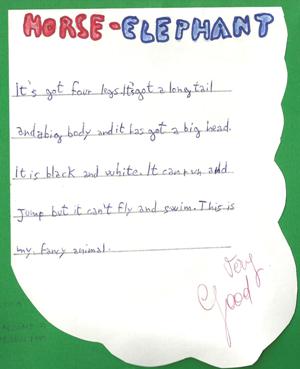 HORSE-ELEPHANT
It's got four legs. It'sgot a long tail
andabig body and it has got a big head.
It is black and white. It can run and
Jump but it can't fly and swim. This is
my. fancy animal.
Very
Good